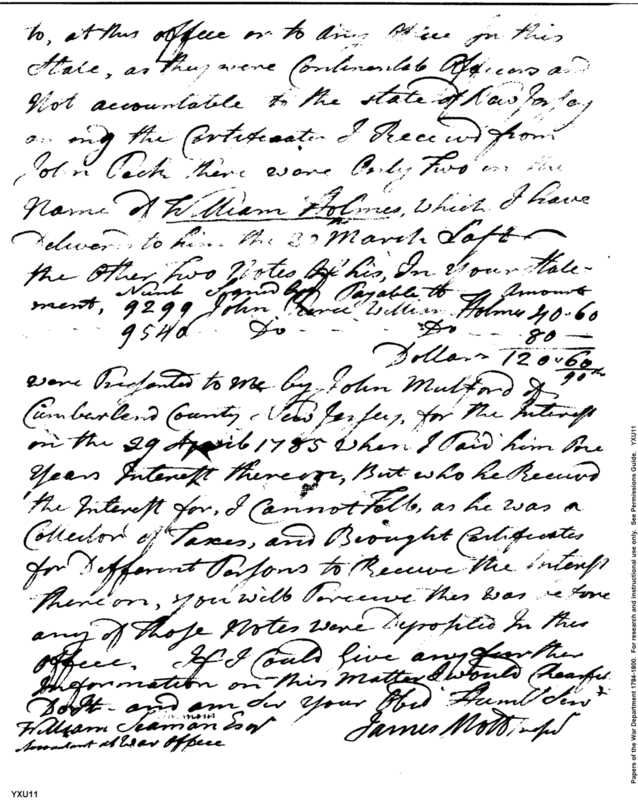 to, at this office or to any office in this
State, as they were Continental Officers and
Not accountable to the state of New Jersey
among the Certificates I Received from
John Peck there were Only Two in the
Name of William Holmes, which I have
Deliver'd to him the 20th March Last
the Other Two Notes of his, In Your State-
ment,
Numb Signd by Payable to Amount
9299 John Pierce William Holmes 40.60
9540 Do Do 80
Dollars 120.60
90ths
were Presented to Me by John Mulford of
Cumberland County New Jersey, for the Interest
on the 29 April 1785 When I Paid him One
Years Interest thereon, But who he Received
the Interest for, I Cannot Tell, as he was a
Collector of Taxes, and Brought Certificates
for Different Persons to Receive the Interest
thereon, you will Perceive this was before
any of those Notes were Deposited In this
office. If I Could Give any further
Information on this Matter I would Chearfully
Do it and am Sir Your Obd Humbl Serv
William Seaman Esqr
Accountant at War Office
James Mott
YXU11
Papers of the War Department 1784-1800. For research and instructional use only. See Permissions Guide. YXU11